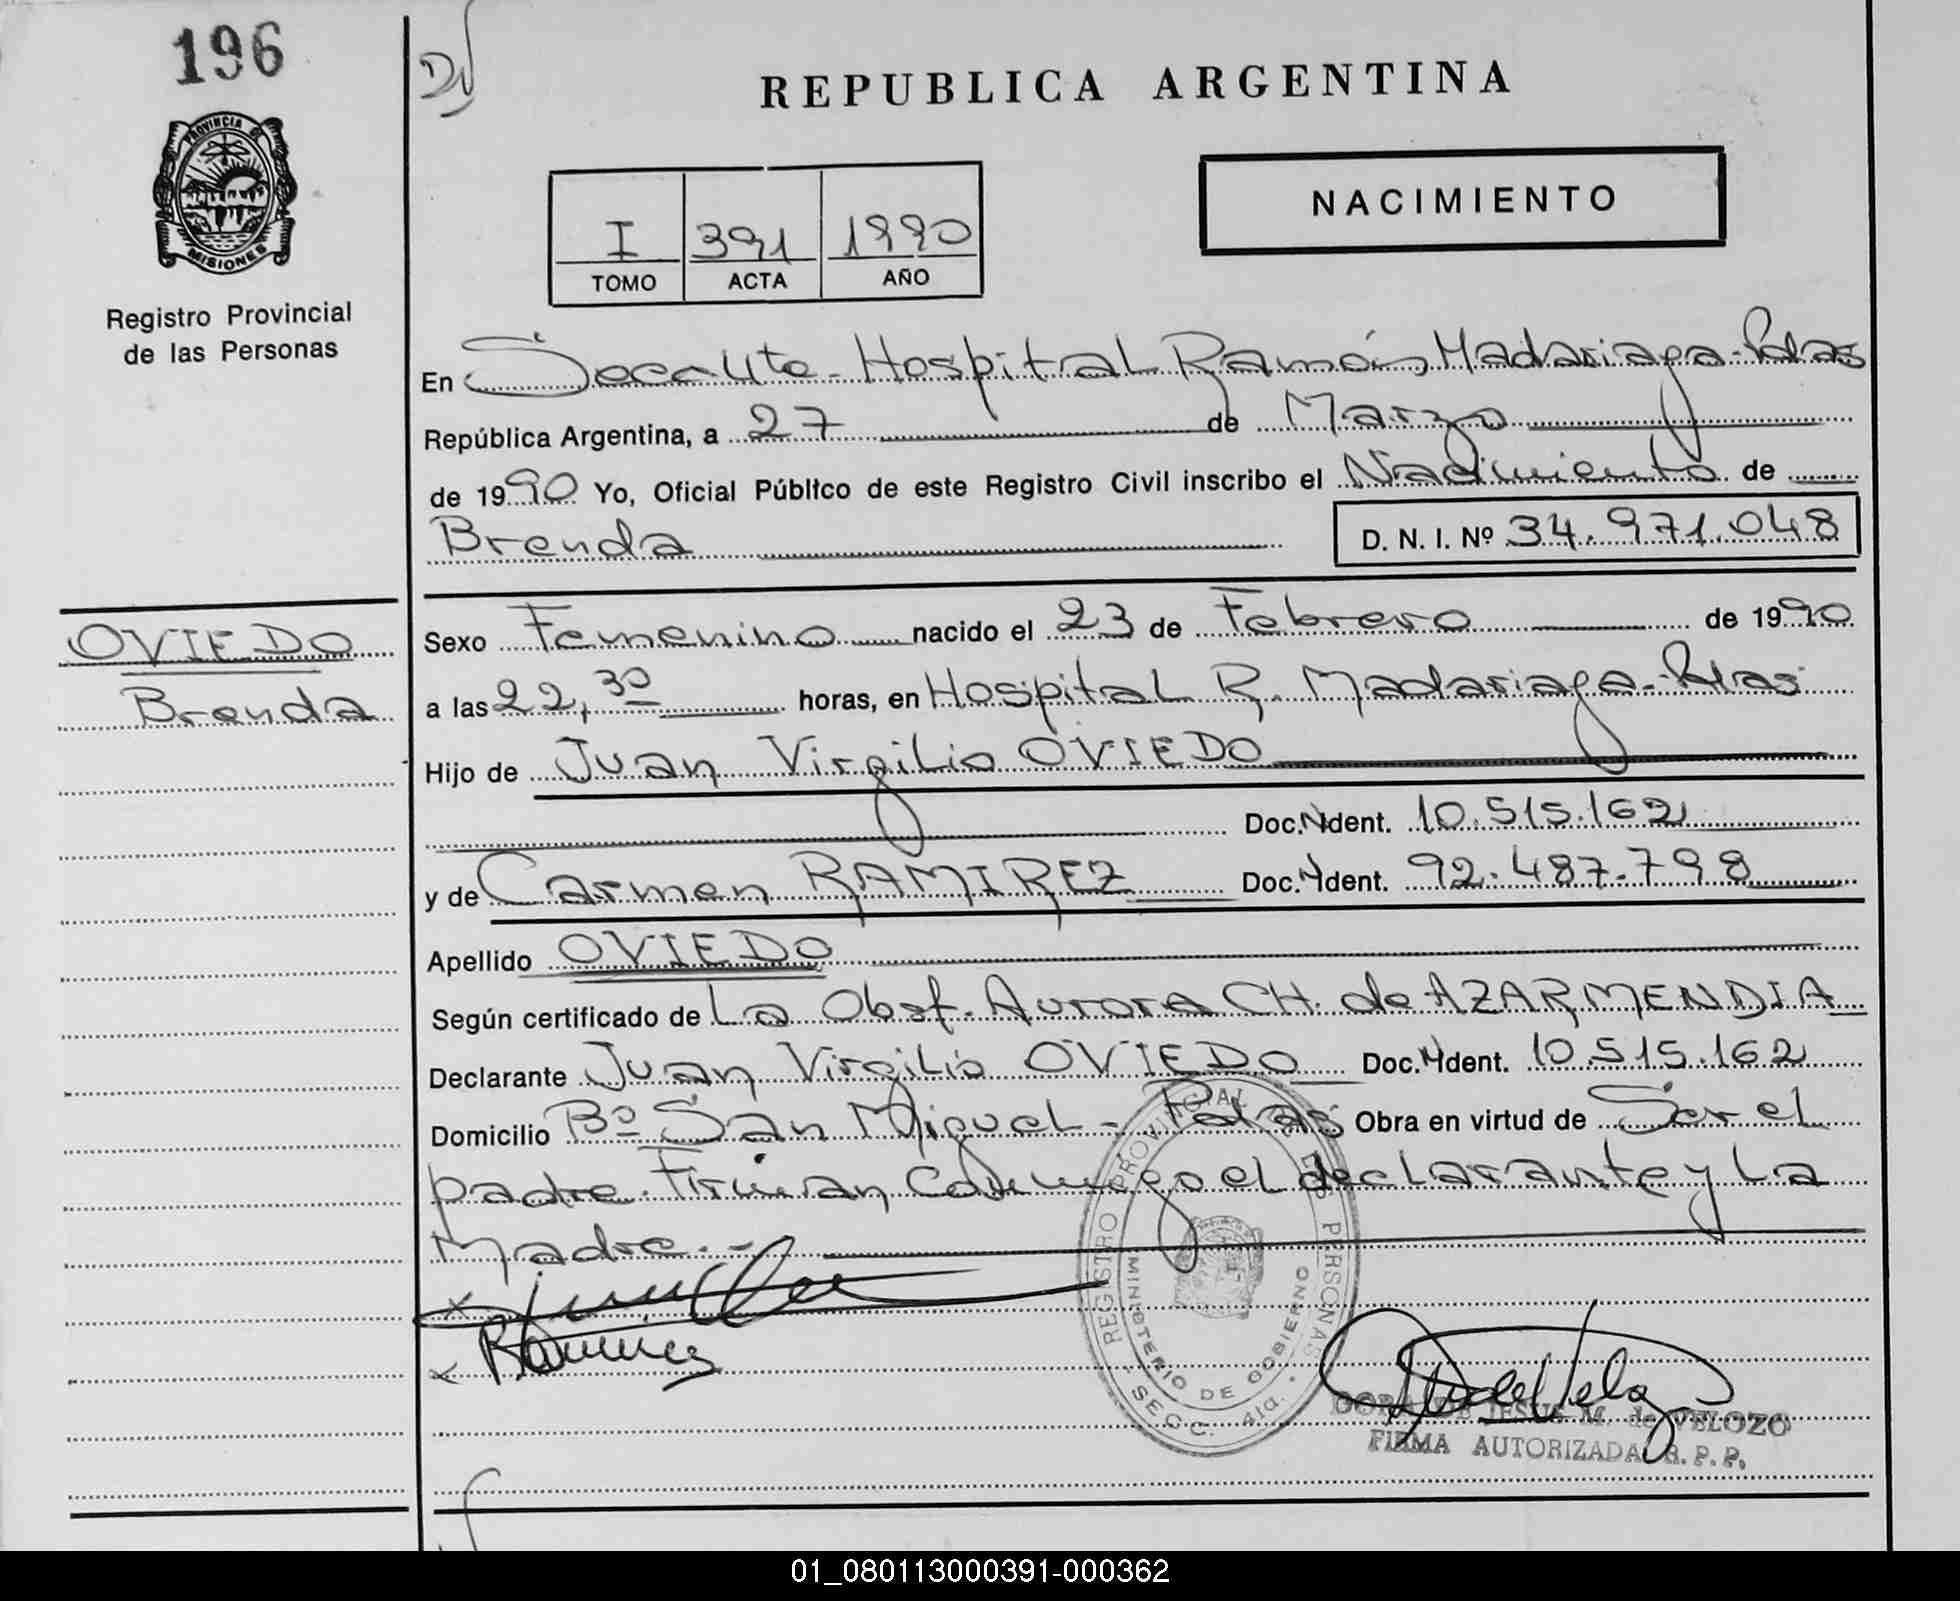 196
REPUBLICA ARGENTINA
PROVINCIA DE
MISIONES
Registro Provincial
de las Personas
NACIMIENTO
I 391 1990
TOMO ACTA AÑO
En Seccuito - Hospital Ramón Madariaga - Pdas
República Argentina, a 27 de Marzo
de 1990 Yo, Oficial Público de este Registro Civil inscribo el Nacimiento de
Brenda D. N. I. Nº 34.971.048
OVIEDO
Brenda
Sexo Femenino nacido el 23 de Febrero de 1990
a las 22,30 horas, en Hospital R. Madariaga - Pdas
Hijo de Juan Virgilio OVIEDO
Doc. Ident. 10.515.162
y de Carmen RAMIREZ Doc. Ident. 92.487.798
Apellido OVIEDO
Según certificado de La Obst. Aurora CH. de AZARMENDIA
Declarante Juan Virgilio OVIEDO Doc. Ident. 10.515.162
Domicilio Bº San Miguel - Pdas Obra en virtud de Ser el
padre. Firman Conmigo el declarante y La
Madre.-
Ramirez
REGISTRO PROVINCIAL DE LAS PERSONAS
MINISTERIO DE GOBIERNO
SECC. 4ta.
DORA DE JESUS M. de VELOZO
FIRMA AUTORIZADA R. P. P.
01_080113000391-000362